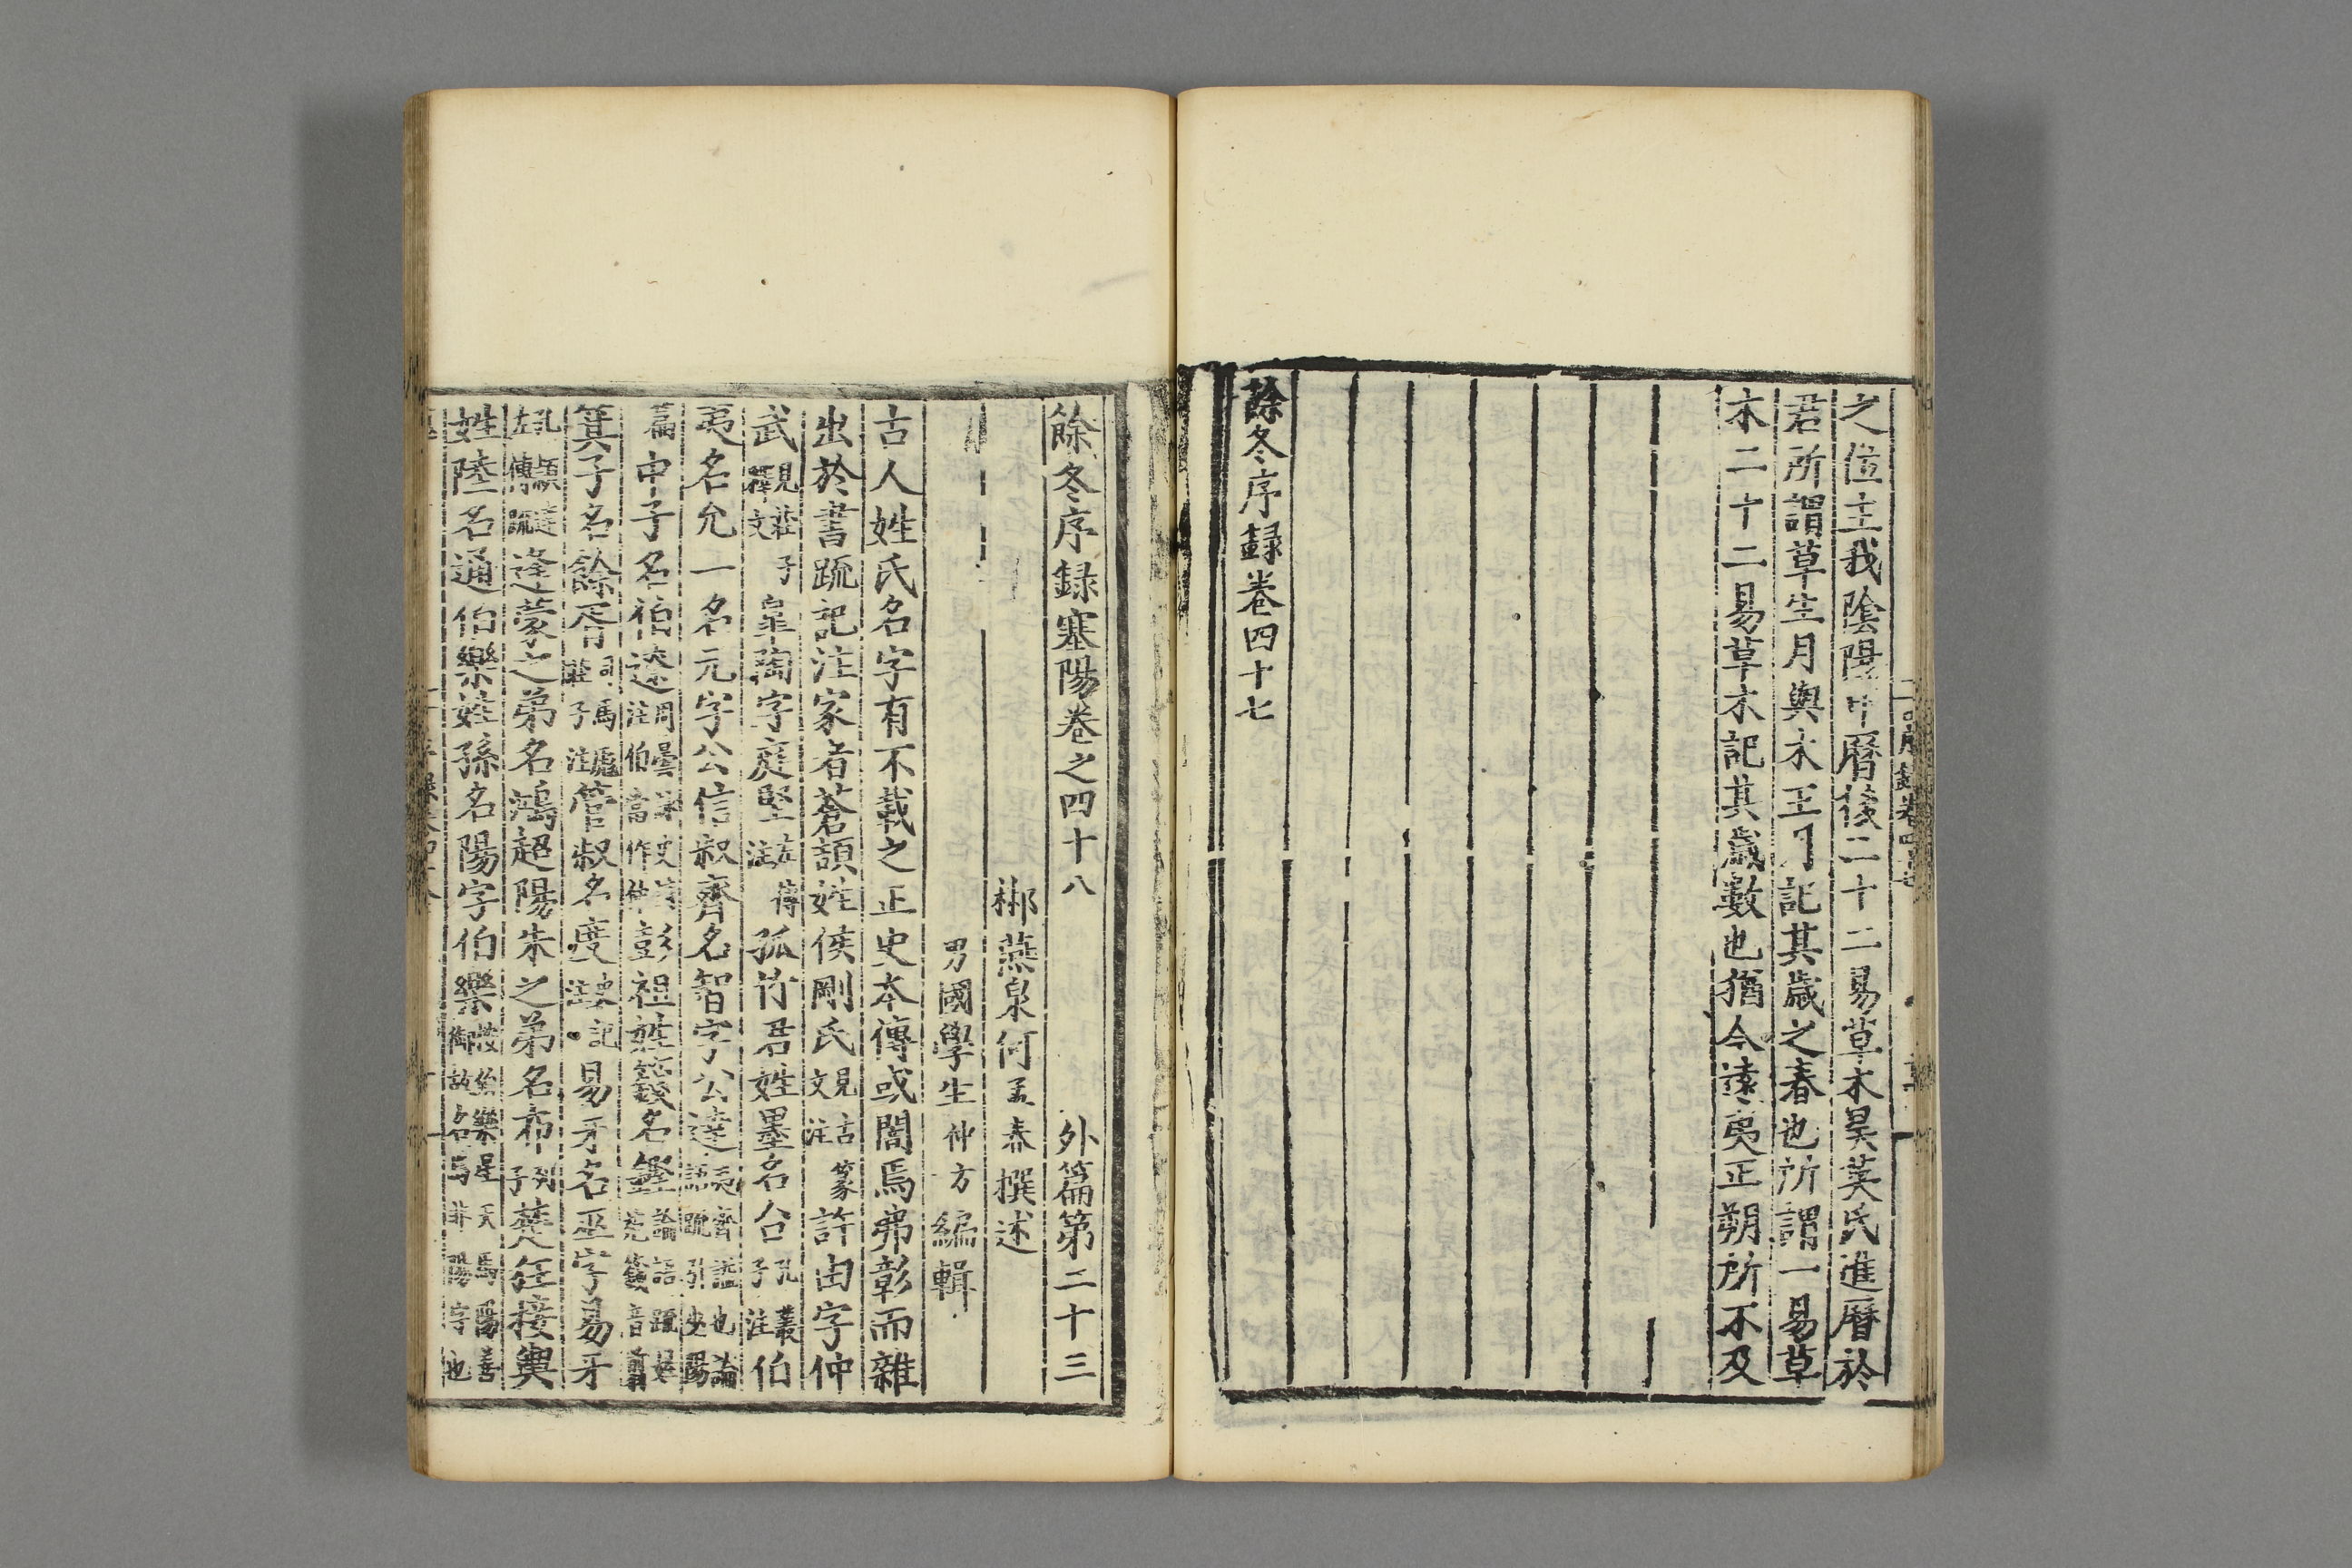 之位主我陰陽中曆後二十二易草木昊英氏進曆於
君所謂草生月與木王月記其歲之春也所謂一易草
木二十二易草木記其歲數也猶今遠夷正朔所不及
餘冬序録卷四十七
餘冬序録塞陽卷之四十八 外篇第二十三
郴燕泉何孟春撰述
男國學生仲方編輯
古人姓氏名字有不載之正史本傳或闇焉弗彰而雜
出於書䟽記注家者蒼頡姓侯剛氏見古篆文注許由字仲
武見莊子釋文皐陶字庭堅左傳注孤竹君姓墨名台孔叢子注伯
夷名允一名元字公信叔齊名智字公達夷齊謚也論語䟽引
篇申子名祐彭祖姓籛名鏗論語䟽
箕子名餘胥司馬彪莊子注管叔名度史記易牙名巫字易牙
孔穎達左傳䟽逢蒙之弟名鴻超陽朱之弟名布列子楚狂接輿
姓陸名通伯樂姓孫名陽字伯樂伯樂星天馬陽善御故名